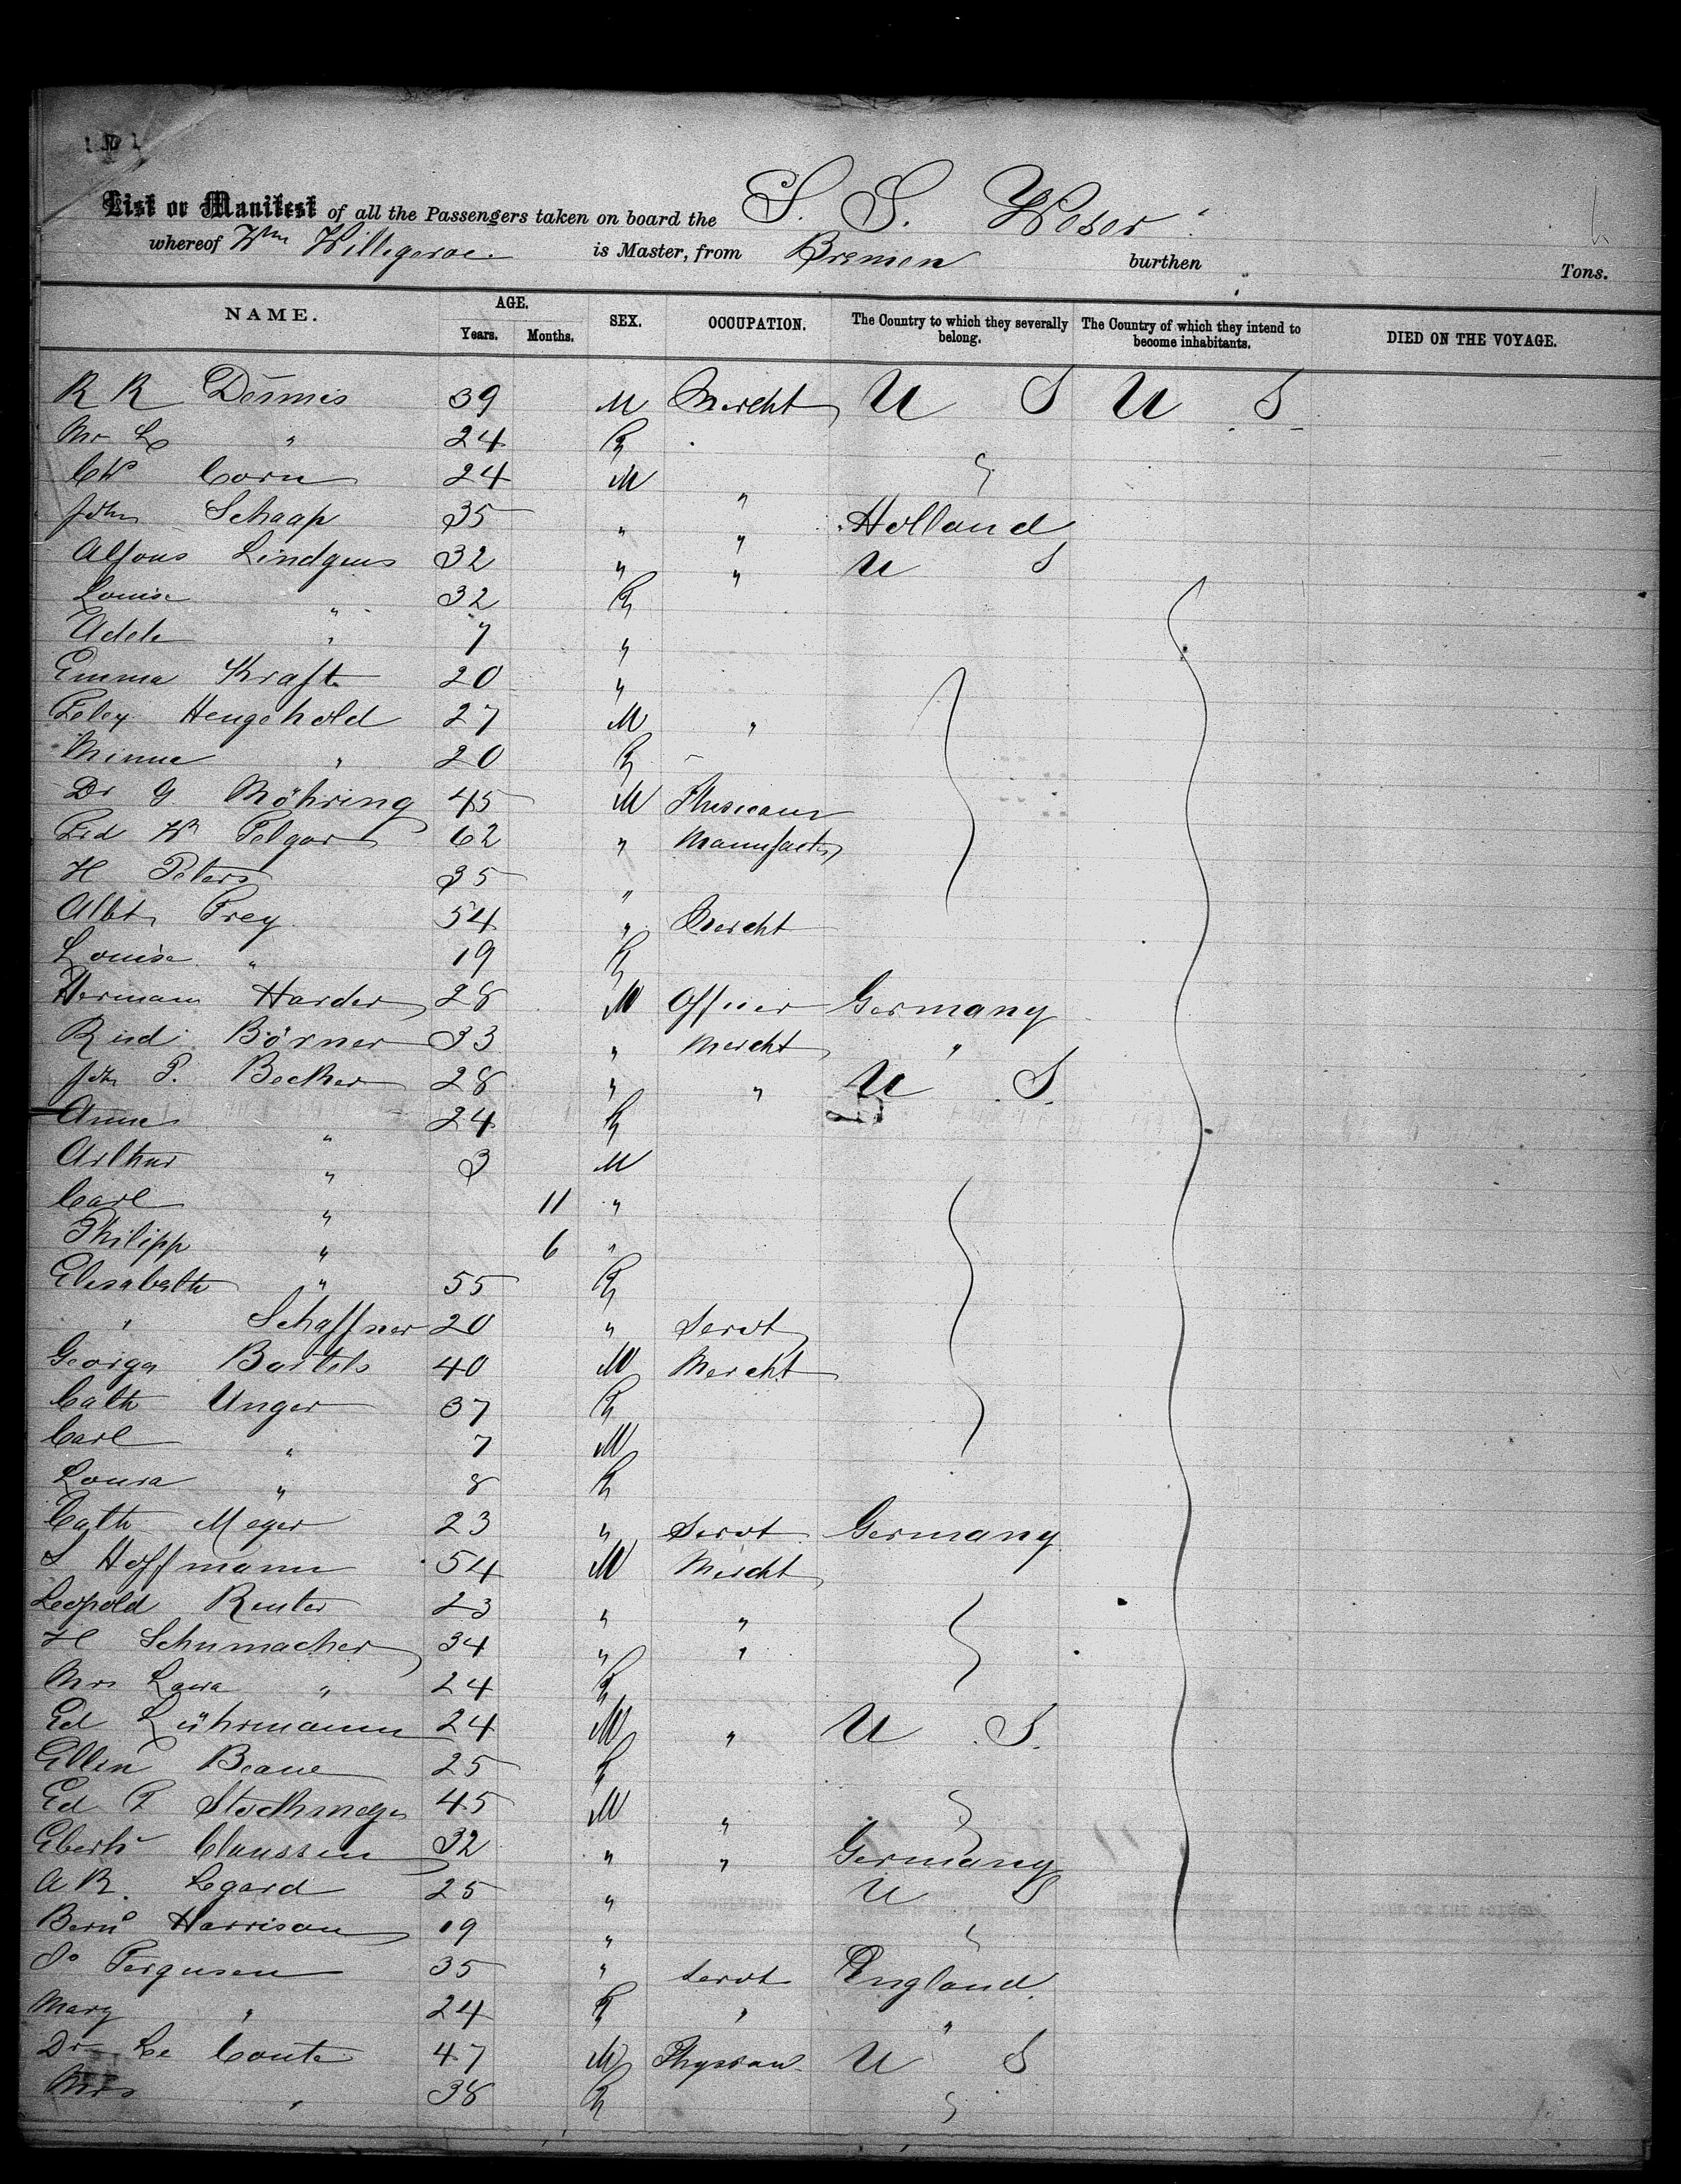 List or Manifest of all the Passengers taken on board the S. S. Weser
whereof Wm Willegerod. is Master, from Bremen burthen Tons.
NAME. AGE. Years. Months. SEX. OCCUPATION. The Country to which they severally belong. The Country of which they intend to become inhabitants. DIED ON THE VOYAGE.
R R Dennis 39 M Mercht U S U S
Mr L " 24 F
Corn 24 M "
John Schaap 35 " " Holland
Alfons Lindgens 32 " " U S
Louise " 32 F
Adele " 7 "
Emma Kraft 20 "
Feley Hengehold 27 M "
Minne " 20 F
Dr G Möhring 45 M Phisicaur
Frd Wm Pelgar 62 " Manufactr
H Peters 35 "
Albt Frey 54 " Mercht
Louise " 19 F
Hermann Harder 28 M Officer Germany
Rud. Börner 33 " Mercht "
Joh P. Becker 28 " " U S.
Anna " 24 F
Arthur " 3 M
Carl " 11 "
Philipp " 6 "
Elisabeth " 55 F
" Schaffner 20 " Servt
George Bartels 40 M Mercht
Cath Unger 37 F
Carl " 7 M
Louisa " 8 F
Cath Meyer 23 " Servt Germany
L Hoffmann 54 M Mercht
Leopold Reuter 23 " "
H Schumacher 34 " "
Mrs Laura " 24 F
Ed Lührmann 24 M " U S.
Ellen Beane 25 F
Ed F Stockmeyer 45 M "
Eberh Claussen 32 " " Germany
A R. Legard 25 " U S
Bernd Harrison 19 "
Ferguson 35 " Servt England.
Mary " 24 F " "
Dr Le Conte 47 M Physian U S
Mrs " 38 F